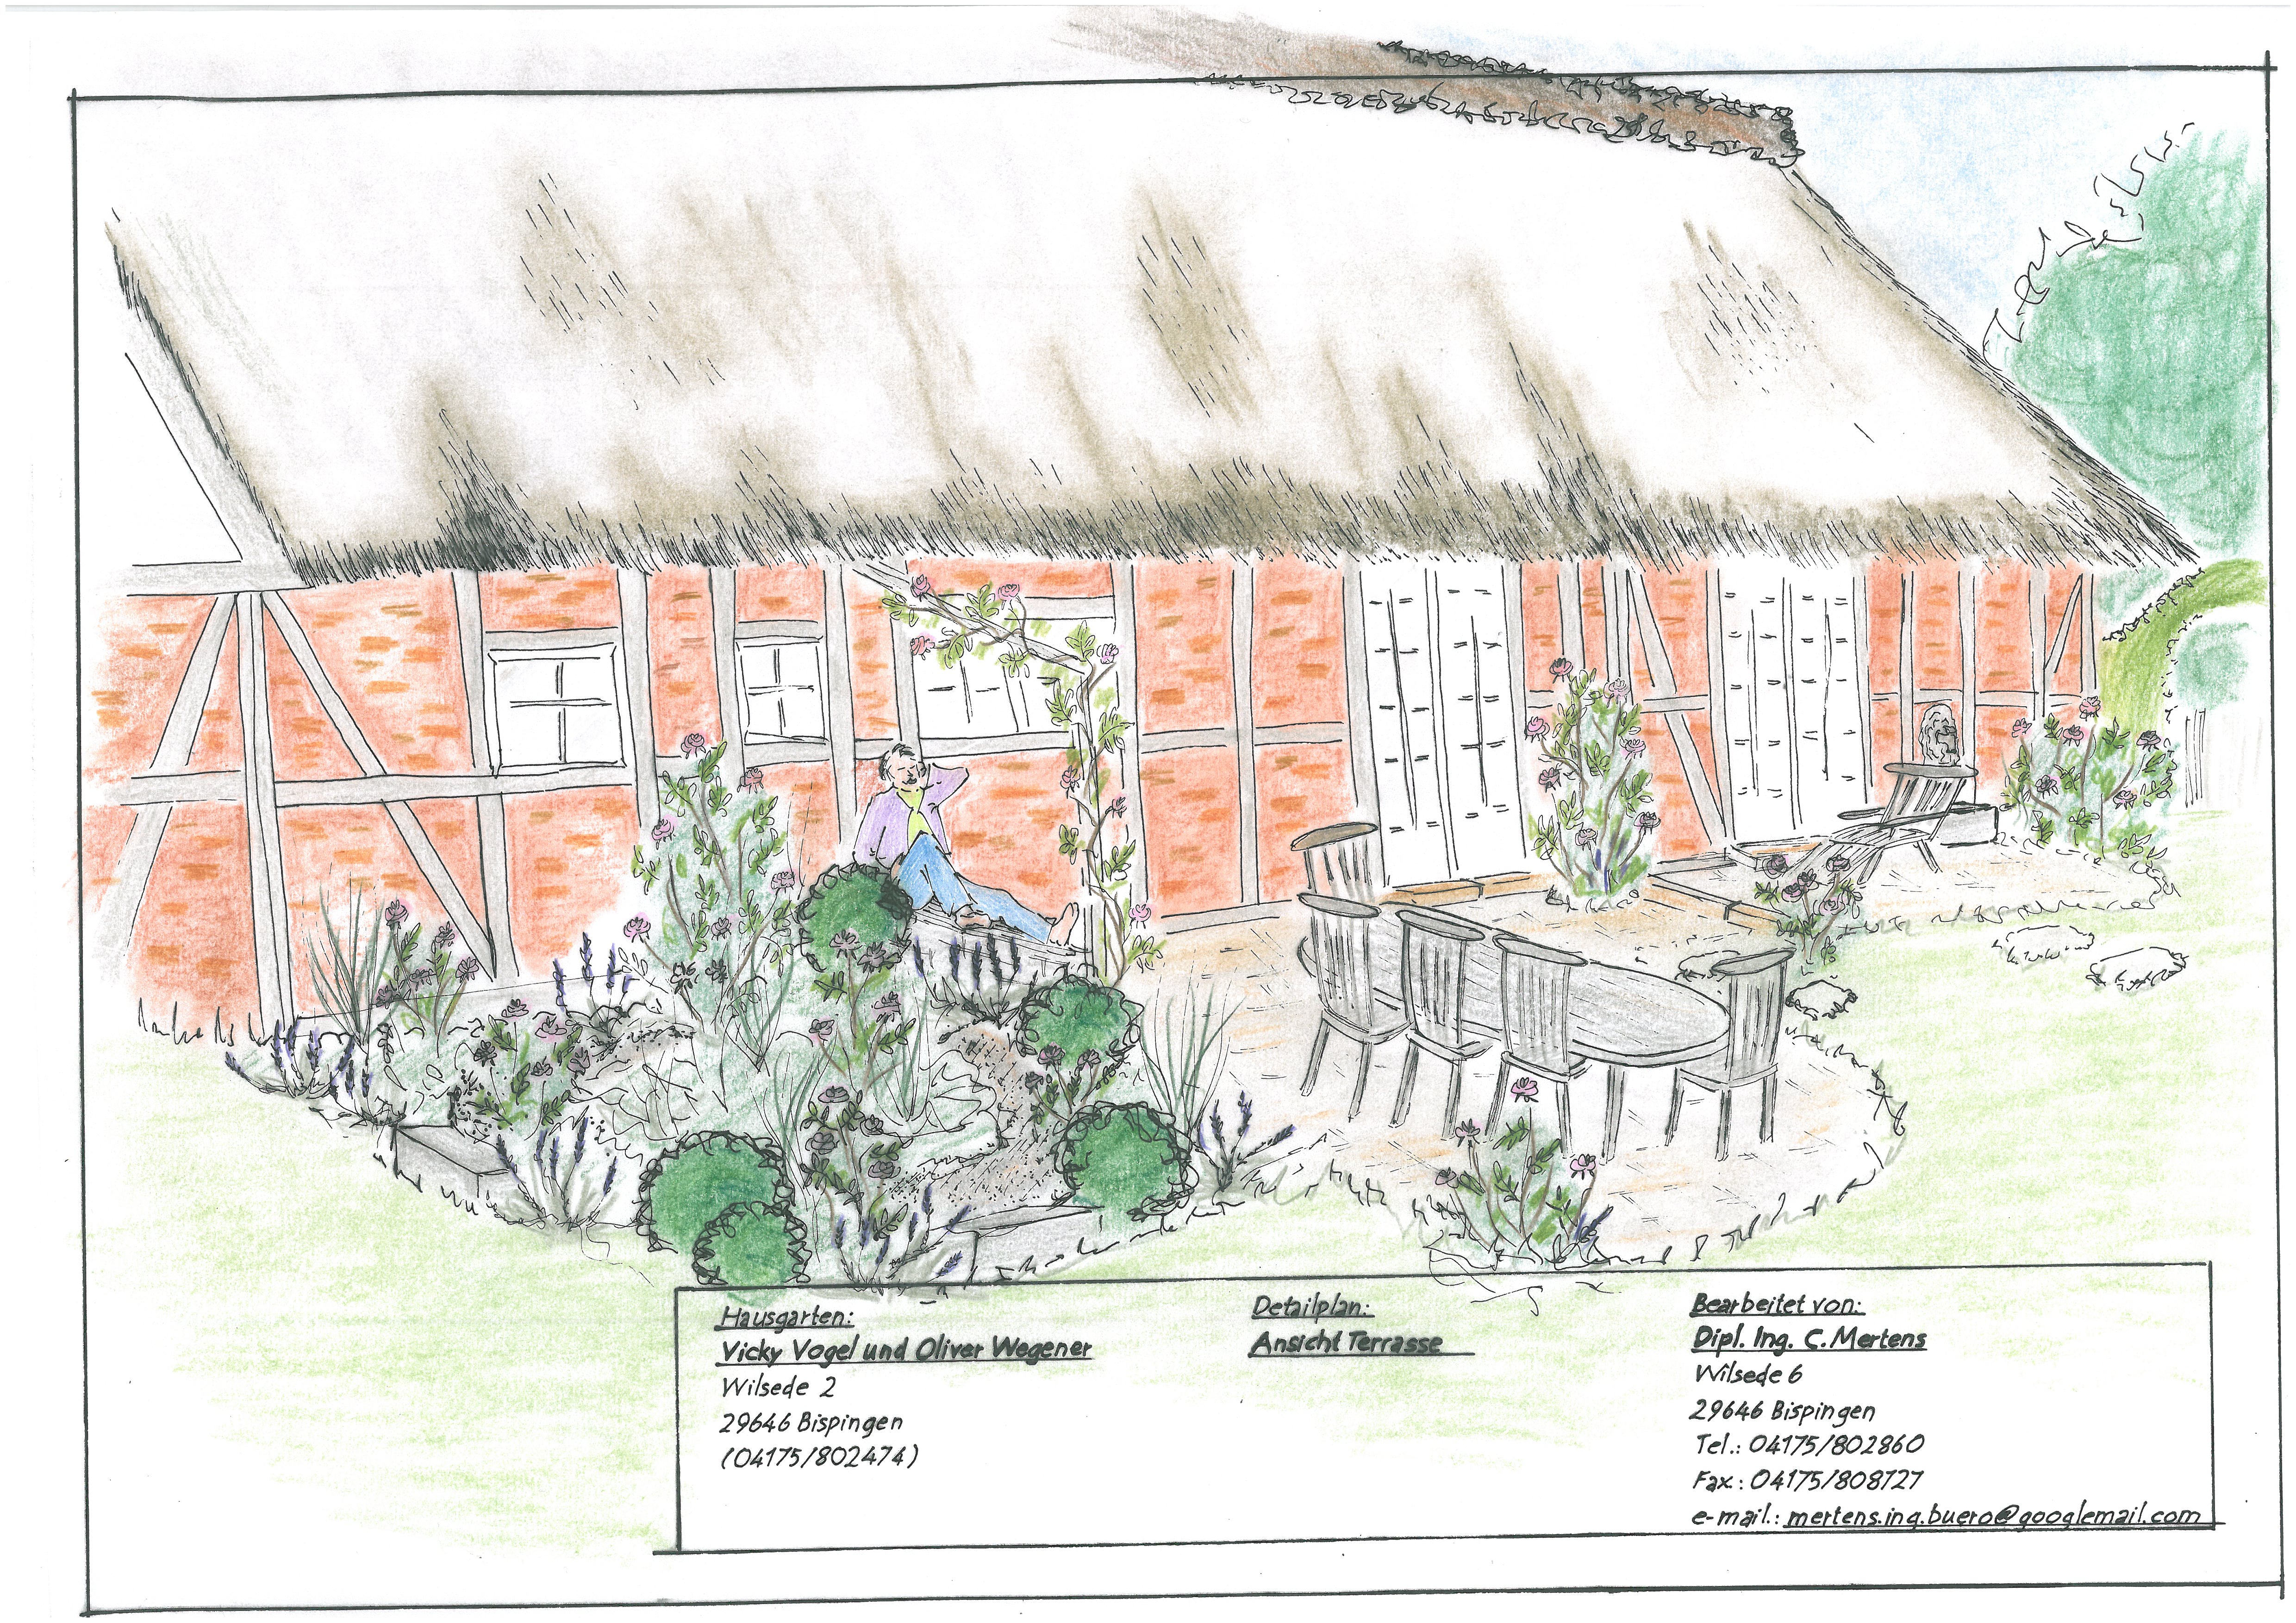 Hausgarten:
Vicky Vogel und Oliver Wegener
Wilsede 2
29646 Bispingen
(04175/802474)
Detailplan:
Ansicht Terrasse
Bearbeitet von:
Dipl. Ing. C. Mertens
Wilsede 6
29646 Bispingen
Tel.: 04175/802860
Fax.: 04175/808727
e-mail.: mertens.ing.buero@googlemail.com